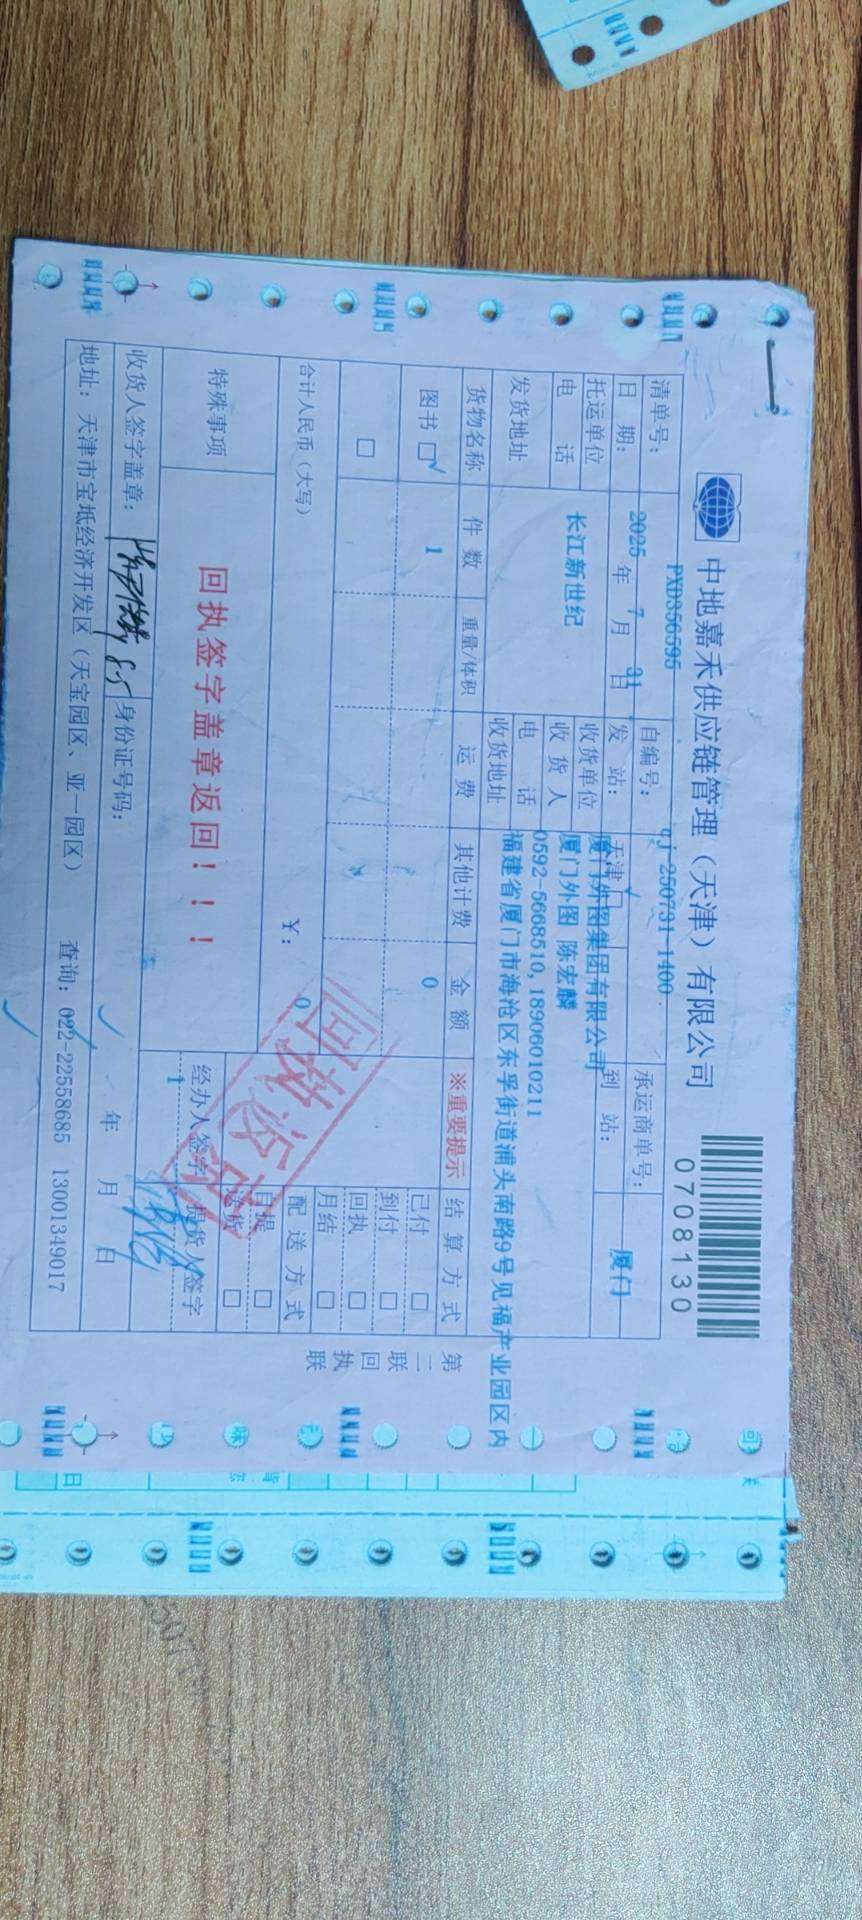 中地嘉禾供应链管理（天津）有限公司
0708130
清单号： PXD356595 自编号： cj-250731-1400 承运商单号：
日 期： 2025 年 7 月 31 日 发 站： 天津 到 站： 厦门
托运单位 长江新世纪 收货单位 厦门外图集团有限公司
电 话 收 货 人 厦门外图 陈宏麟
电 话 0592-5668510,18906010211
发货地址 收货地址 福建省厦门市海沧区东孚街道浦头南路9号见福产业园区内
货物名称 件 数 重量/体积 运 费 其他计费 金 额 ※重要提示 结 算 方 式
图书 □ √ 1 0 已付 □
□ 到付 □
回执 □
月结 □
合计人民币（大写） ￥： 0 配 送 方 式
自提 □
送货 □
特殊事项 回执签字盖章返回！！！ 经办人签字 提货人签字
1
回执返回
收货人签字盖章： 身份证号码： 年 月 日
地址：天津市宝坻经济开发区（天宝园区、亚一园区） 查询：022-22558685 13001349017
第二联 回执联